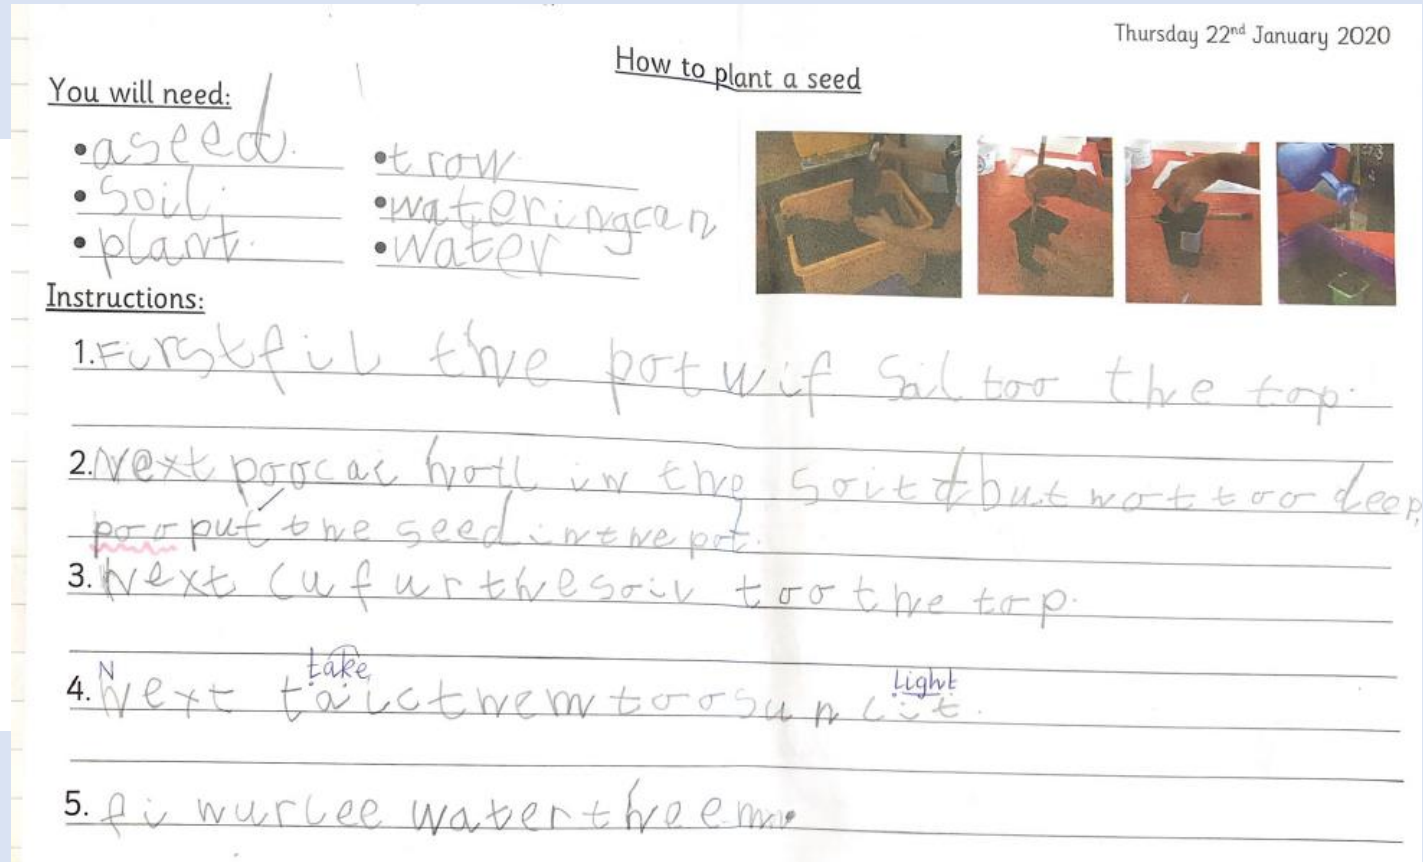 Thursday 22nd January 2020
How to plant a seed
You will need:
• a seed.
• soil.
• plant.
• trow
• wateringcan
• water
Instructions:
1. First fil the pot wif sil too the top.
2. Next poocai holl in the soil but not too deep,
poo put the seed in the pot.
3. Next cufur the soil too the top.
N take light
4. Next taic them too sun lit.
5. fi wurlee water theem.